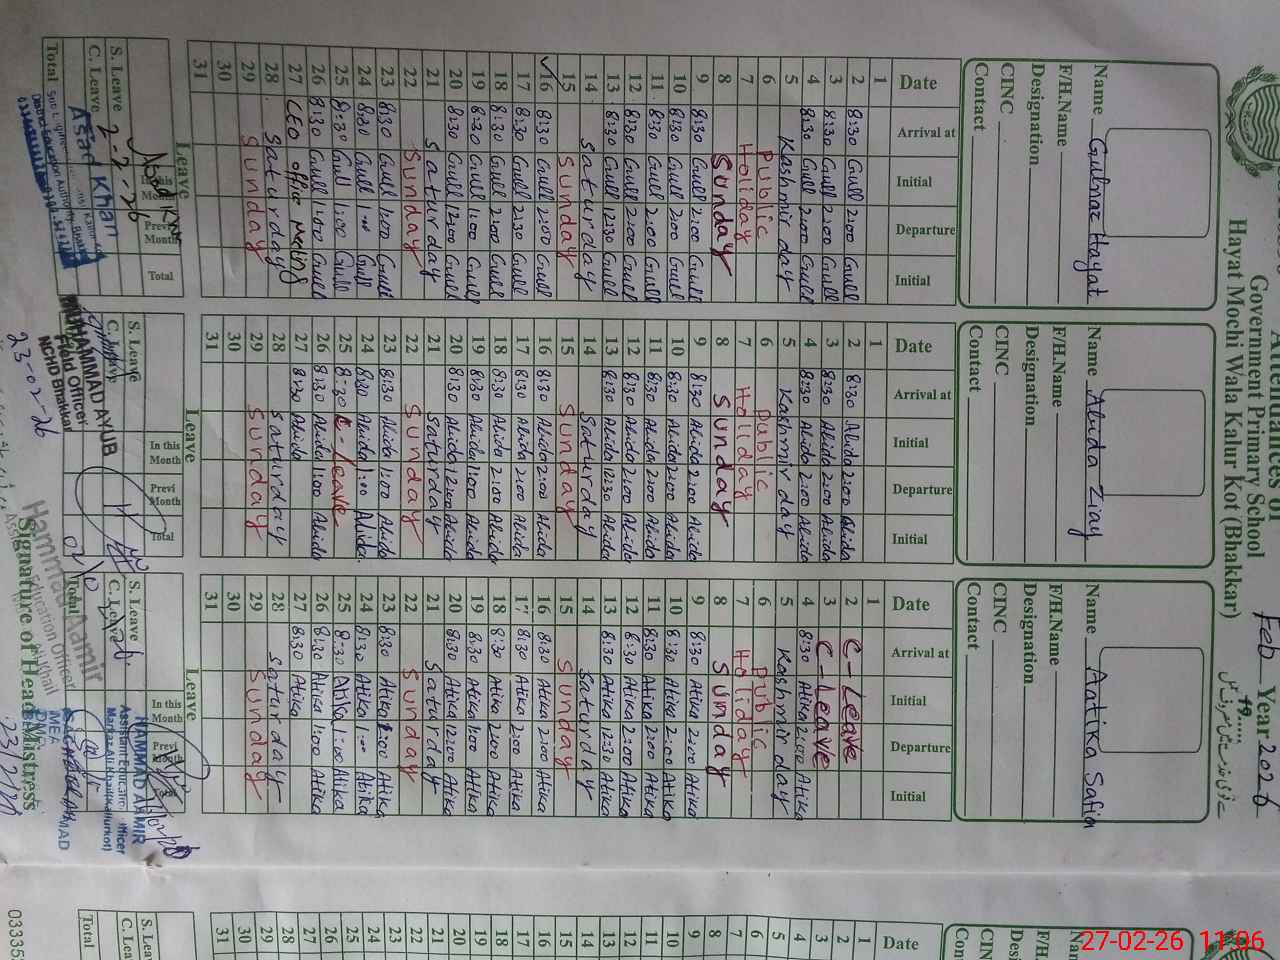 Attendances of
Government Primary School
Hayat Mochi Wala Kalur Kot (Bhakkar)
Feb Year 2026
19.....
Name Gulnaz Hayat
F/H.Name
Designation
CINC
Contact
Date Arrival at Initial Departure Initial
1
2 8:30 Gull 2:00 Gull
3 8:30 Gull 2:00 Gull
4 8:30 Gull 2:00 Gull
5 Kashmir day
6 Public
7 Holiday
8 Sunday
9 8:30 Gull 2:00 Gull
10 8:30 Gull 2:00 Gull
11 8:30 Gull 2:00 Gull
12 8:30 Gull 2:00 Gull
13 8:30 Gull 12:30 Gull
14 Saturday
15 Sunday
16 8:30 Gull 2:00 Gull
17 8:30 Gull 2:30 Gull
18 8:30 Gull 2:00 Gull
19 8:30 Gull 1:00 Gull
20 8:30 Gull 12:00 Gull
21 Saturday
22 Sunday
23 8:30 Gull 1:00 Gull
24 8:30 Gull 1:00 Gull
25 8:30 Gull 1:00 Gull
26 8:30 Gull 1:00 Gull
27 CEO office Meeting
28 Saturday
29 Sunday
30
31
Leave
In this Month Previ Month Total
S. Leave
C. Leave 2-2-26
Total
Asad Khan
Name Abida Ziay
F/H.Name
Designation
CINC
Contact
Date Arrival at Initial Departure Initial
1
2 8:30 Abida 2:00 Abida
3 8:30 Abida 2:00 Abida
4 8:30 Abida 2:00 Abida
5 Kashmir day
6 Public
7 Holiday
8 Sunday
9 8:30 Abida 2:00 Abida
10 8:30 Abida 2:00 Abida
11 8:30 Abida 2:00 Abida
12 8:30 Abida 2:00 Abida
13 8:30 Abida 12:30 Abida
14 Saturday
15 Sunday
16 8:30 Abida 2:00 Abida
17 8:30 Abida 2:00 Abida
18 8:30 Abida 2:00 Abida
19 8:30 Abida 1:00 Abida
20 8:30 Abida 12:00 Abida
21 Saturday
22 Sunday
23 8:30 Abida 1:00 Abida
24 8:30 Abida 1:00 Abida
25 8:30 C-Leave
26 8:30 Abida 1:00 Abida
27 8:30 Abida
28 Saturday
29 Sunday
30
31
Leave
In this Month Previ Month Total
S. Leave
C. Leave
MUHAMMAD AYUB
Field Officer
NCHD Bhakkar
23-02-26
Name Aatika Safia
F/H.Name
Designation
CINC
Contact
Date Arrival at Initial Departure Initial
1
2 C-Leave
3 C-Leave
4 8:30 Atika 2:00 Atika
5 Kashmir day
6 Public
7 Holiday
8 Sunday
9 8:30 Atika 2:00 Atika
10 8:30 Atika 2:00 Atika
11 8:30 Atika 2:00 Atika
12 8:30 Atika 2:00 Atika
13 8:30 Atika 12:30 Atika
14 Saturday
15 Sunday
16 8:30 Atika 2:00 Atika
17 8:30 Atika 2:00 Atika
18 8:30 Atika 2:00 Atika
19 8:30 Atika 1:00 Atika
20 8:30 Atika 12:00 Atika
21 Saturday
22 Sunday
23 8:30 Atika 1:00 Atika
24 8:30 Atika 1:00 Atika
25 8:30 Atika 1:00 Atika
26 8:30 Atika 1:00 Atika
27 8:30 Atika
28 Saturday
29 Sunday
30
31
Leave
In this Month Previ Month Total
S. Leave
C. Leave
Total
Hammad Aamir
Education Officer
HAMMAD AAMIR
Assistant Education Officer
MEA
Signature of Head Mistress
Date
1
2
3
4
5
6
7
8
9
10
11
12
13
14
15
16
17
18
19
20
21
22
23
24
25
26
27
28
29
30
31
Total
27-02-26 11:06